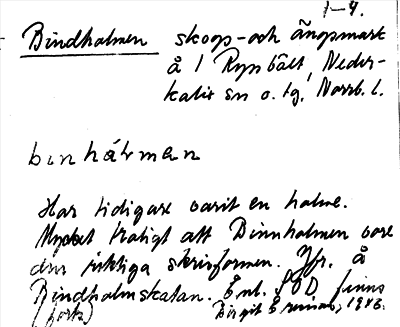 1-4.
Bindholmen skogs- och ängsmark
å 1 Rynbält, Neder-
kalix sn o. tg, Norrb. l.
binhålmen
Har tidigare varit en holme.
Mycket troligt att Binnholmen vore
den riktiga skrivformen. Jfr. å
Bindholmskatan. Enl. SOD finns
(forts)
Birgit 1946.